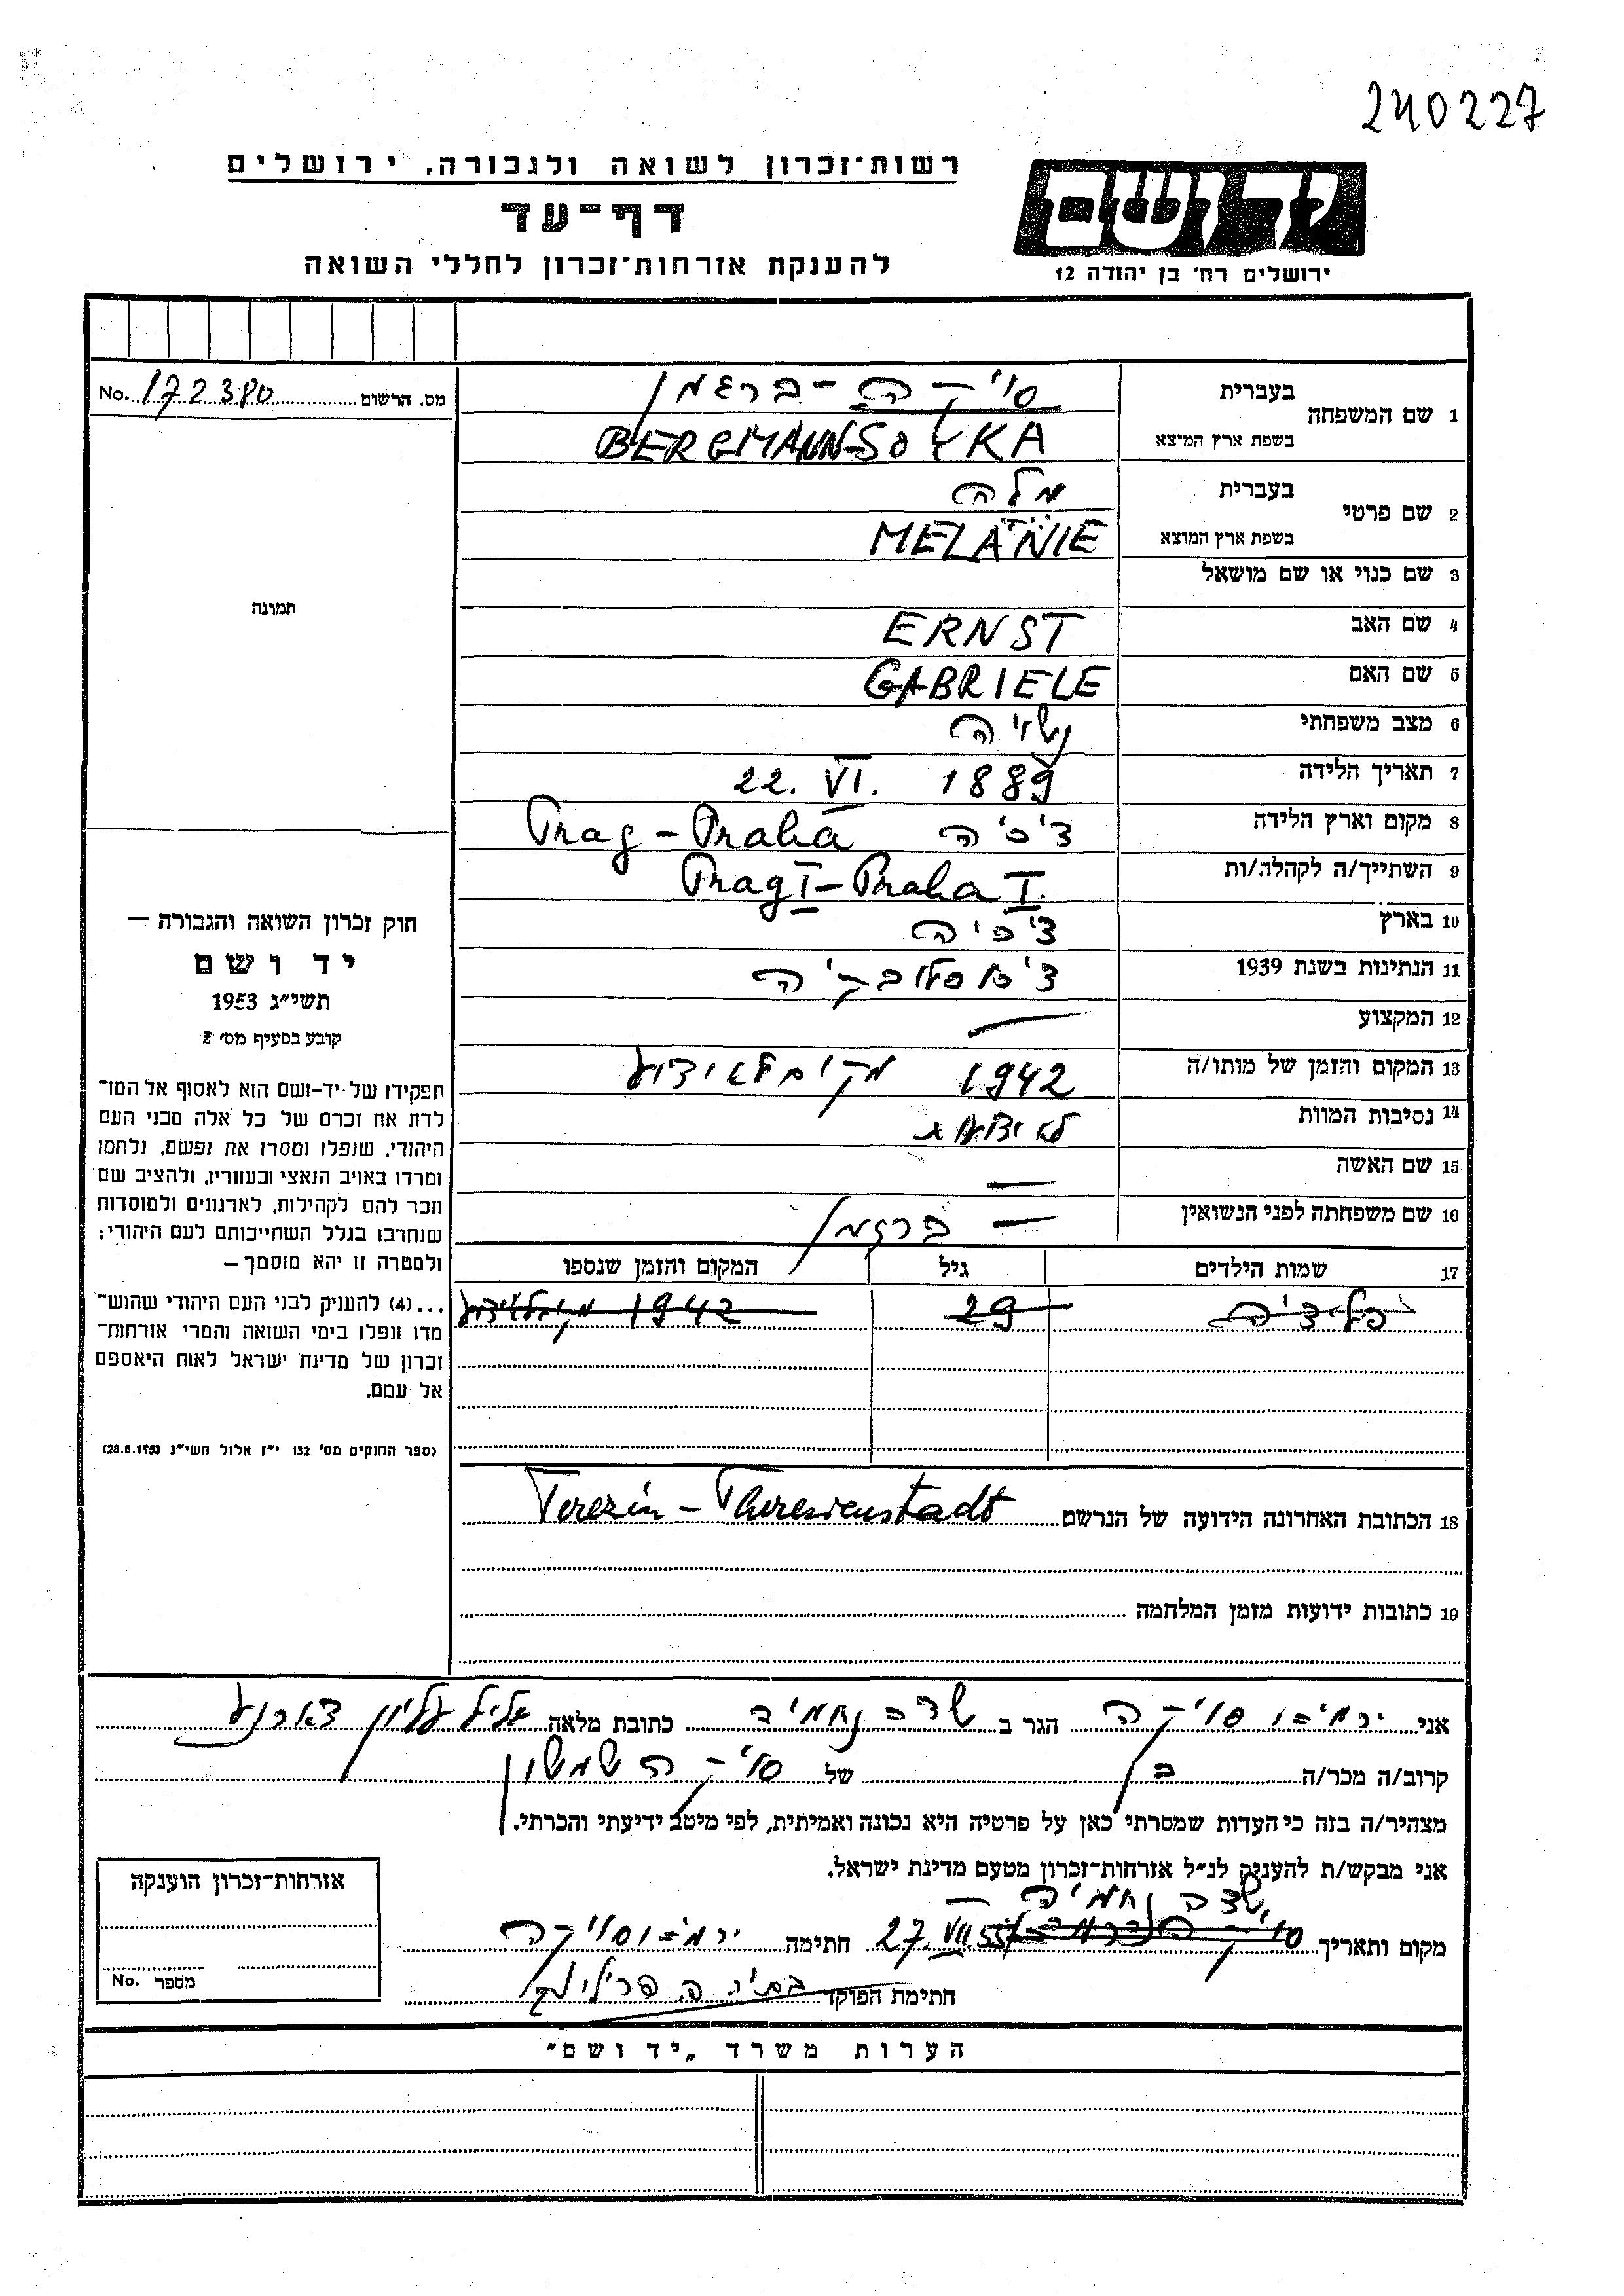 240227
ידושם
ירושלים רח' בן יהודה 12
רשות־זכרון לשואה ולגבורה, ירושלים
דף־עד
להענקת אזרחות־זכרון לחללי השואה
מס. הרשום No. 172380
תמונה
חוק זכרון השואה והגבורה –
יד ושם
תשי"ג 1953
קובע בסעיף מס' 2
תפקידו של יד-ושם הוא לאסוף אל המו־
לדת את זכרם של כל אלה מבני העם
היהודי, שנפלו ומסרו את נפשם, נלחמו
ומרדו באויב הנאצי ובעוזריו, ולהציב שם
וזכר להם לקהילות, לארגונים ולמוסדות
שנחרבו בגלל השתייכותם לעם היהודי;
ולמטרה זו יהא מוסמך –
...(4) להעניק לבני העם היהודי שהוש־
מדו ונפלו בימי השואה והמרי אזרחות־
זכרון של מדינת ישראל לאות היאספם
אל עמם.
(ספר החוקים מס' 132 י"ז אלול תשי"ג 28.8.1953)
1 שם המשפחה בעברית סויקה - ברגמן
בשפת ארץ המוצא BERGMANN-SOYKA
2 שם פרטי בעברית מלה
בשפת ארץ המוצא MELANIE
3 שם כנוי או שם מושאל
4 שם האב ERNST
5 שם האם GABRIELE
6 מצב משפחתי נשויה
7 תאריך הלידה 22. VI. 1889
8 מקום וארץ הלידה צ'כיה Prag - Praha
9 השתייך/ה לקהלה/ות Prag I - Praha I.
10 בארץ צ'כיה
11 הנתינות בשנת 1939 צ'כוסלובקיה
12 המקצוע —
13 המקום והזמן של מותו/ה 1942 מקום לא ידוע
14 נסיבות המוות לא ידוע
15 שם האשה —
16 שם משפחתה לפני הנשואין — ברגמן
17 שמות הילדים גיל המקום והזמן שנספו
29 1942
18 הכתובת האחרונה הידועה של הנרשם Terezín - Theresienstadt
19 כתובות ידועות מזמן המלחמה
אני ירמיהו סויקה הגר ב שדה נחמיה כתובת מלאה גליל עליון
קרוב/ה מכר/ה בן של סויקה שמשון
מצהיר/ה בזה כי העדות שמסרתי כאן על פרטיה היא נכונה ואמיתית, לפי מיטב ידיעתי והכרתי.
אני מבקש/ת להעניק לנ"ל אזרחות־זכרון מטעם מדינת ישראל.
שדה נחמיה
מקום ותאריך 27. VII. 55 חתימה ירמיהו סויקה
חתימת הפוקד
אזרחות־זכרון הוענקה
מספר No.
הערות משרד "יד ושם"